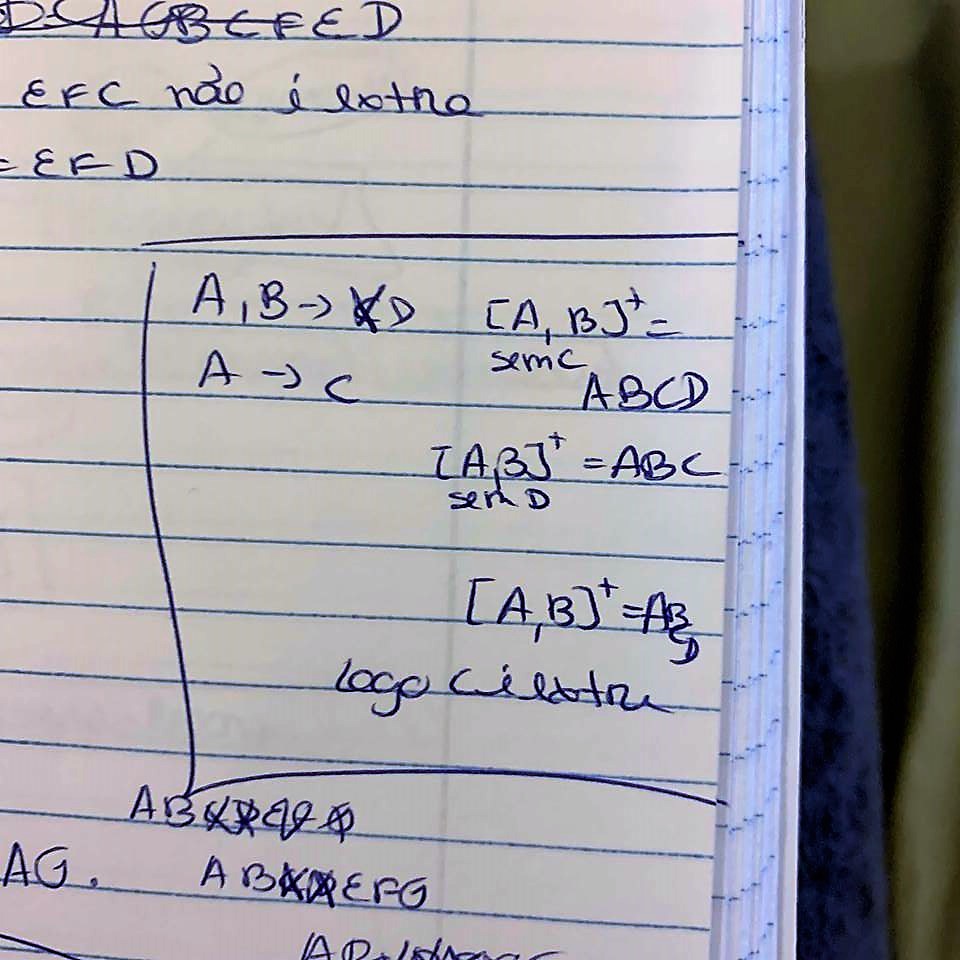 EFC não é extra
= EFD
A,B → D [A, B]⁺ =
sem C
A → C ABCD
[A,B]⁺ = ABC
sem D
[A,B]⁺ = AB
D
Logo C é extra
AB
AG. AB EFG